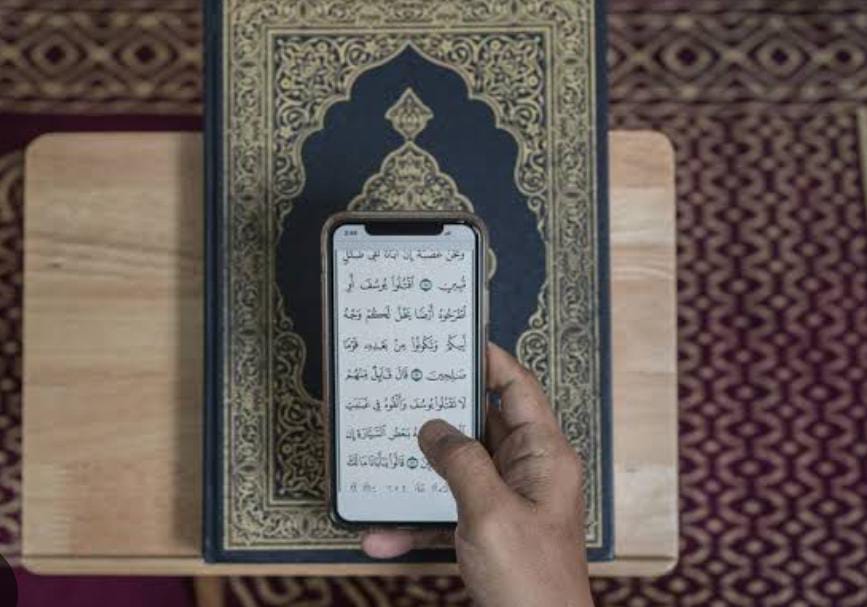 2:00
وَنَحْنُ عُصْبَةٌ إِنَّ أَبَانَا لَفِى ضَلَٰلٍ
مُّبِينٍ ٨ ٱقْتُلُوا۟ يُوسُفَ أَوِ
ٱطْرَحُوهُ أَرْضًا يَخْلُ لَكُمْ وَجْهُ
أَبِيكُمْ وَتَكُونُوا۟ مِنۢ بَعْدِهِۦ قَوْمًا
صَٰلِحِينَ ٩ قَالَ قَآئِلٌ مِّنْهُمْ
لَا تَقْتُلُوا۟ يُوسُفَ وَأَلْقُوهُ فِى غَيَٰبَتِ
بَعْضُ ٱلسَّيَّارَةِ إِن
١٠ قَالُوا۟ يَٰٓأَبَانَا مَا لَكَ